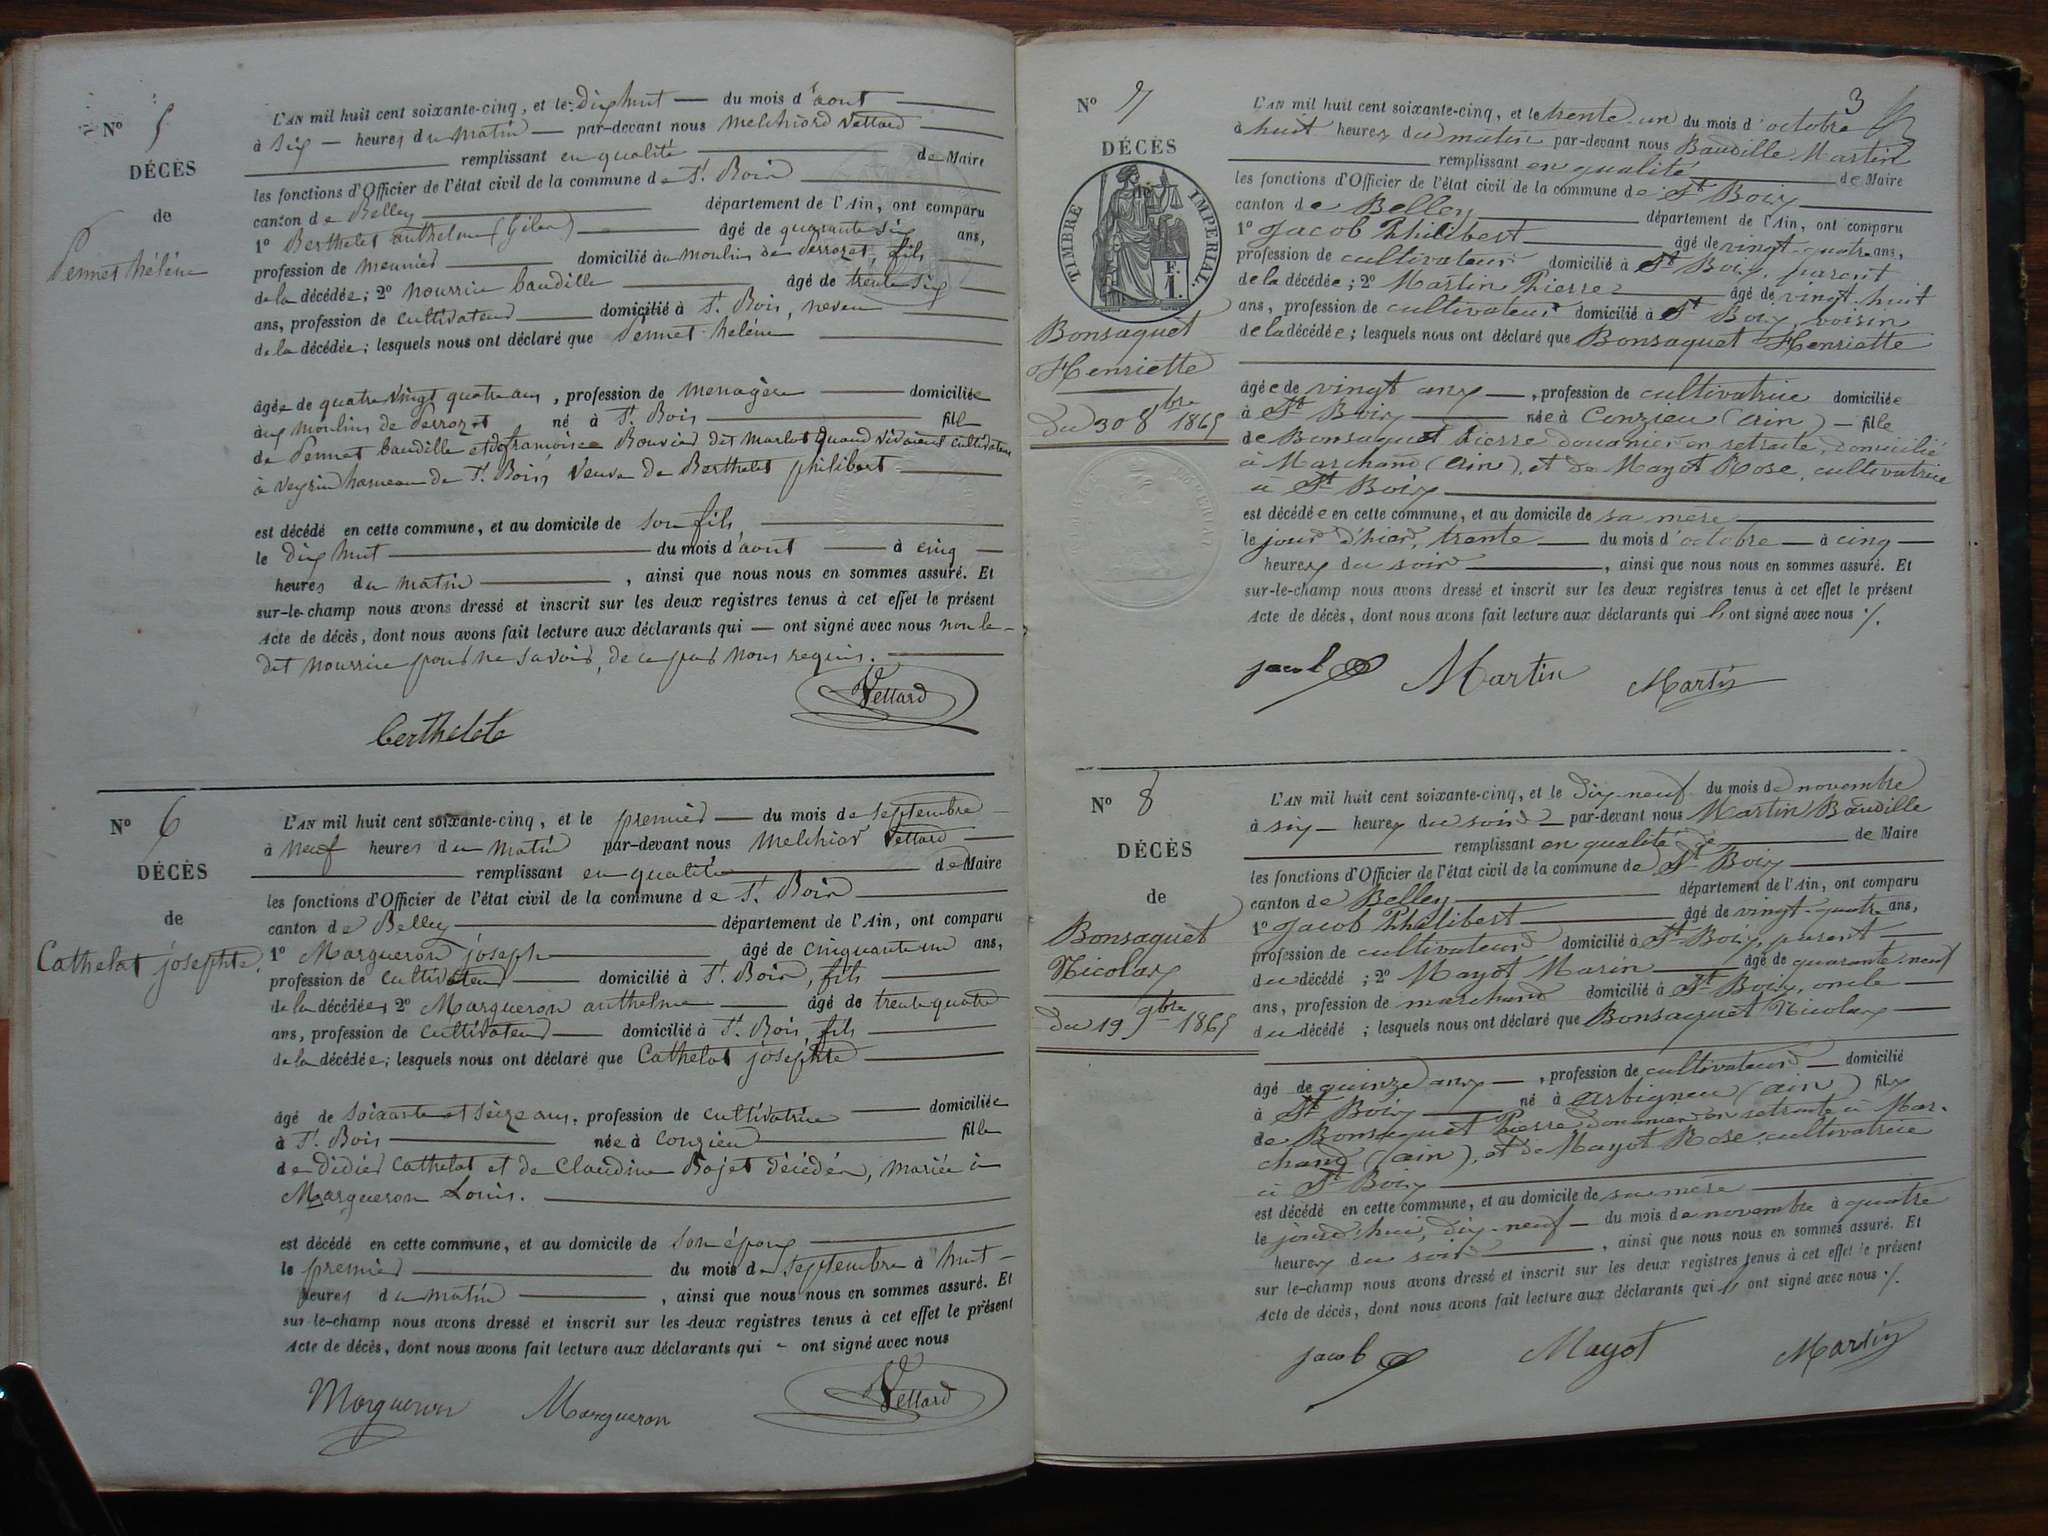 N° 5
DÉCÈS
de
Pennet hélène
L'AN mil huit cent soixante-cinq, et le dix huit — du mois d'aout
à six — heures du matin — par-devant nous Melchiord Vettard
remplissant en qualité de Maire
les fonctions d'Officier de l'état civil de la commune de St. Bois
canton de Belley département de l'Ain, ont comparu
1° Berthelet anthelme âgé de quarante six ans,
profession de meunier domicilié au moulin de , fils
de la décédée; 2° nourrice baudille âgé de trente six
ans, profession de cultivateur domicilié à St. Bois, neveu
de la décédée; lesquels nous ont déclaré que Pennet hélène
âgée de quatre vingt quatre ans, profession de menagère domiciliée
aux moulins de né à St. Bois fille
de Pennet baudille et de françoise Bouvier dit marlot quand vivaient cultivateurs
à veyrin hameau de St. Bois, veuve de Berthelet philibert
est décédé en cette commune, et au domicile de son fils
le dix huit du mois d'aout à cinq
heures du matin , ainsi que nous nous en sommes assuré. Et
sur-le-champ nous avons dressé et inscrit sur les deux registres tenus à cet effet le présent
Acte de décès, dont nous avons fait lecture aux déclarants qui — ont signé avec nous non le-
dit nourrice pour ne savoir, de ce par nous requis.
Vettard
berthelete
N° 6
DÉCÈS
de
Cathelat josephte.
L'AN mil huit cent soixante-cinq, et le premier — du mois de septembre
à neuf heures du matin par-devant nous Melchior Vettard
remplissant en qualité de Maire
les fonctions d'Officier de l'état civil de la commune de St. Bois
canton de Belley département de l'Ain, ont comparu
1° Margueron joseph âgé de cinquante un ans,
profession de cultivateur domicilié à St. Bois, fils
de la décédée; 2° Margueron anthelme âgé de trente quatre
ans, profession de cultivateur domicilié à St. Bois, fils
de la décédée; lesquels nous ont déclaré que Cathelat josephte
âgé de soixante et seize ans, profession de cultivatrice domiciliée
à St. Bois née à Conzieu fille
de Didier Cathelat et de Claudine Bojet décédés, mariée à
Margueron Louis.
est décédé en cette commune, et au domicile de son époux
le premier du mois de septembre à huit
heures du matin , ainsi que nous nous en sommes assuré. Et
sur-le-champ nous avons dressé et inscrit sur les deux registres tenus à cet effet le présent
Acte de décès, dont nous avons fait lecture aux déclarants qui - ont signé avec nous
Margueron Margueron Vettard
3
N° 7
DÉCÈS
TIMBRE IMPERIAL
F.
1.
Bonsaquet
Henriette
Du 30 8bre 1865
L'AN mil huit cent soixante-cinq, et le trente-un du mois d'octobre
à huit heures du matin par-devant nous Baudille Martin
remplissant en qualité de Maire
les fonctions d'Officier de l'état civil de la commune de St Boix
canton de Belley département de l'Ain, ont comparu
1° Jacob Philibert âgé de vingt-quatre ans,
profession de cultivateur domicilié à St Boix, parent
de la décédée; 2° Martin Pierre âgé de vingt-huit
ans, profession de cultivateur domicilié à St Boix, voisin
de la décédée; lesquels nous ont déclaré que Bonsaquet Henriette
âgée de vingt ans —, profession de cultivatrice domiciliée
à St Boix née à Conzieu (Ain) — fille
de Bonsaquet Pierre douanier en retraite, domicilié
à Marchand (Ain), et de Mayot Rose, cultivatrice
à St Boix
est décédée en cette commune, et au domicile de sa mère
le jour d'hier, trente — du mois d'octobre — à cinq
heures du soir , ainsi que nous nous en sommes assuré. Et
sur-le-champ nous avons dressé et inscrit sur les deux registres tenus à cet effet le présent
Acte de décès, dont nous avons fait lecture aux déclarants qui ont signé avec nous ./.
jacob Martin Martin
N° 8
DÉCÈS
de
Bonsaquet
Nicolas
Du 19 9bre 1865
L'AN mil huit cent soixante-cinq, et le dix-neuf du mois de novembre
à six — heures du soir — par-devant nous Martin Baudille
remplissant en qualité de de Maire
les fonctions d'Officier de l'état civil de la commune de St Boix
canton de Belley département de l'Ain, ont comparu
1° Jacob Philibert âgé de vingt-quatre ans,
profession de cultivateur domicilié à St Boix, parent
du décédé; 2° Mayot Marin âgé de quarante-neuf
ans, profession de marchand domicilié à St Boix, oncle
du décédé; lesquels nous ont déclaré que Bonsaquet Nicolas
âgé de quinze ans —, profession de cultivateur — domicilié
à St Boix né à Arbignieu (ain) fils
de Bonsaquet Pierre douanier en retraite à Mar-
chand (ain), et de Mayot Rose, cultivatrice
à St Boix
est décédé en cette commune, et au domicile de sa mère
le jourd'hui, dix-neuf — du mois de novembre à quatre
heures du soir , ainsi que nous nous en sommes assuré. Et
sur-le-champ nous avons dressé et inscrit sur les deux registres tenus à cet effet le présent
Acte de décès, dont nous avons fait lecture aux déclarants qui ont signé avec nous ./.
jacob Mayot Martin